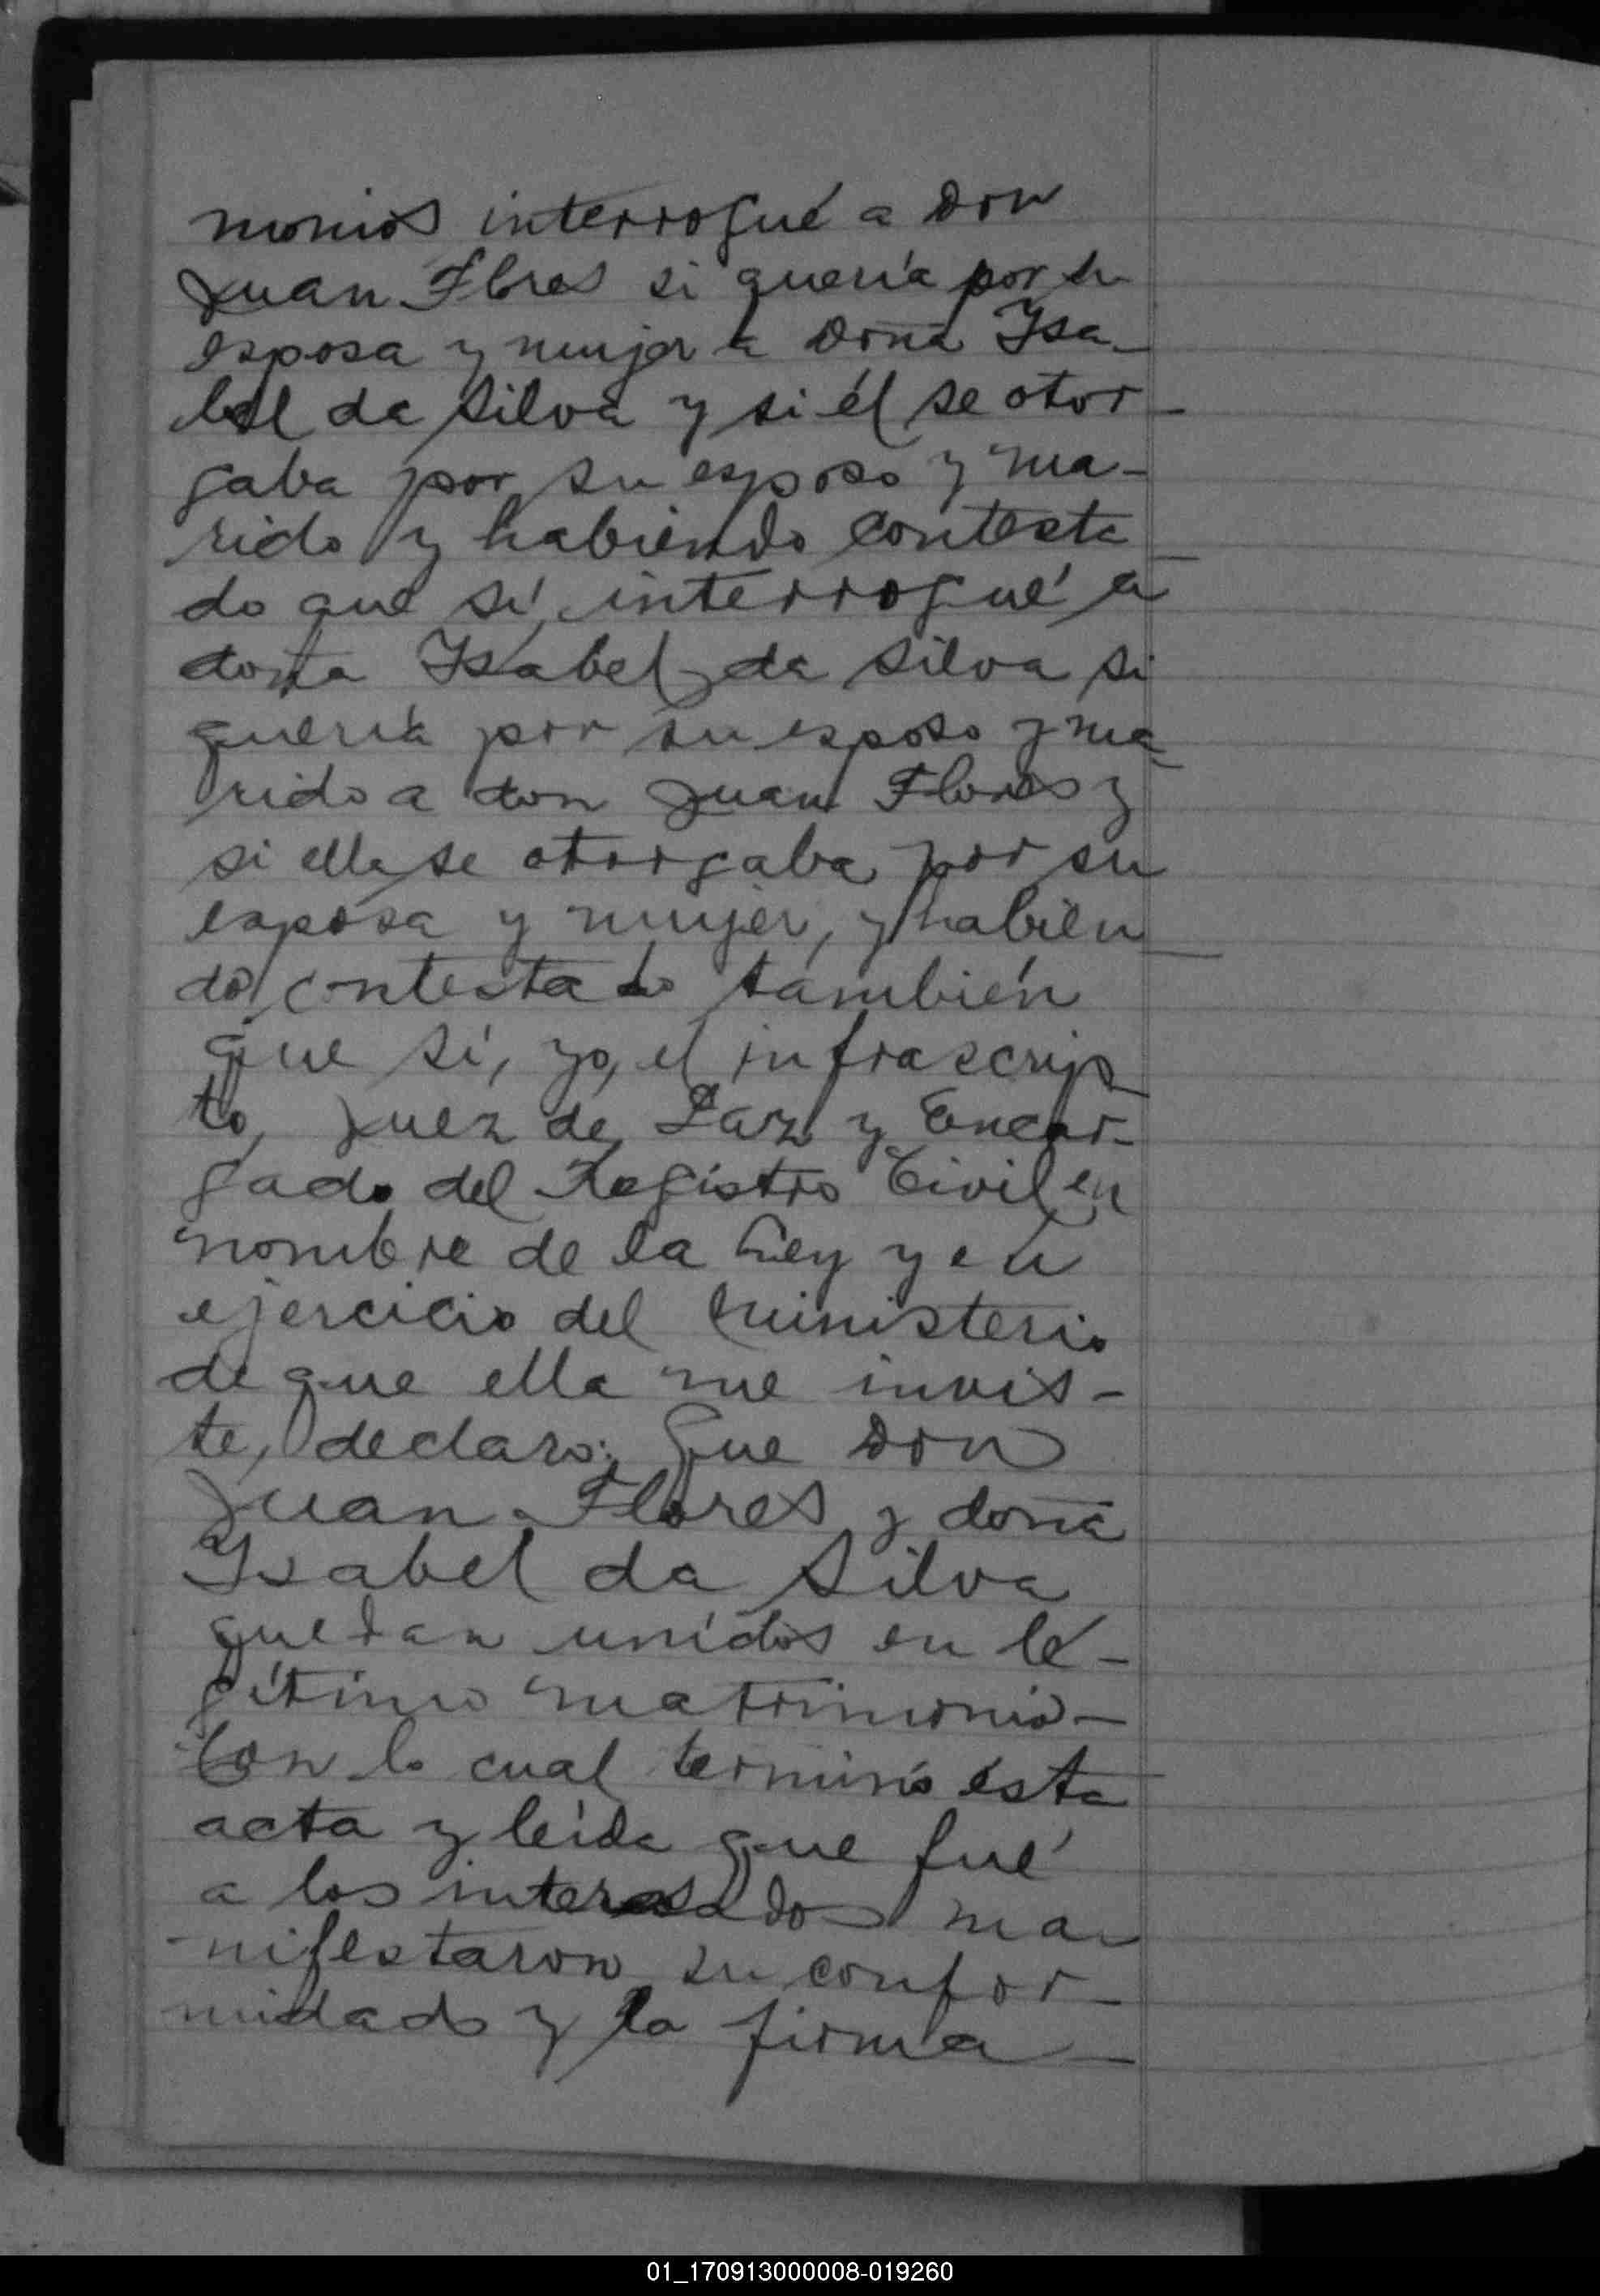 monios interrogué a Don
Juan Flores si quería por su
esposa y mujer a Doña Isa-
bel da Silva y si él se otor-
gaba por su esposo y ma-
rido y habiendo contesta-
do que sí, interrogué a
doña Isabel da Silva si
quería por su esposo y ma-
rido a don Juan Flores y
si ella se otorgaba por su
esposa y mujer, y habien-
do contestado también
que sí, yo, el infrascrip-
to, Juez de Paz y Encar-
gado del Registro Civil en
nombre de la Ley y en
ejercicio del ministerio
de que ella me invis-
te, declaro: Que Don
Juan Flores y doña
Isabel da Silva
quedan unidos en le-
gítimo matrimonio-
Con lo cual terminó ésta
acta y leída que fué
a los interesados ma-
nifestaron su confor-
midad y la firma-
01_170913000008-019260